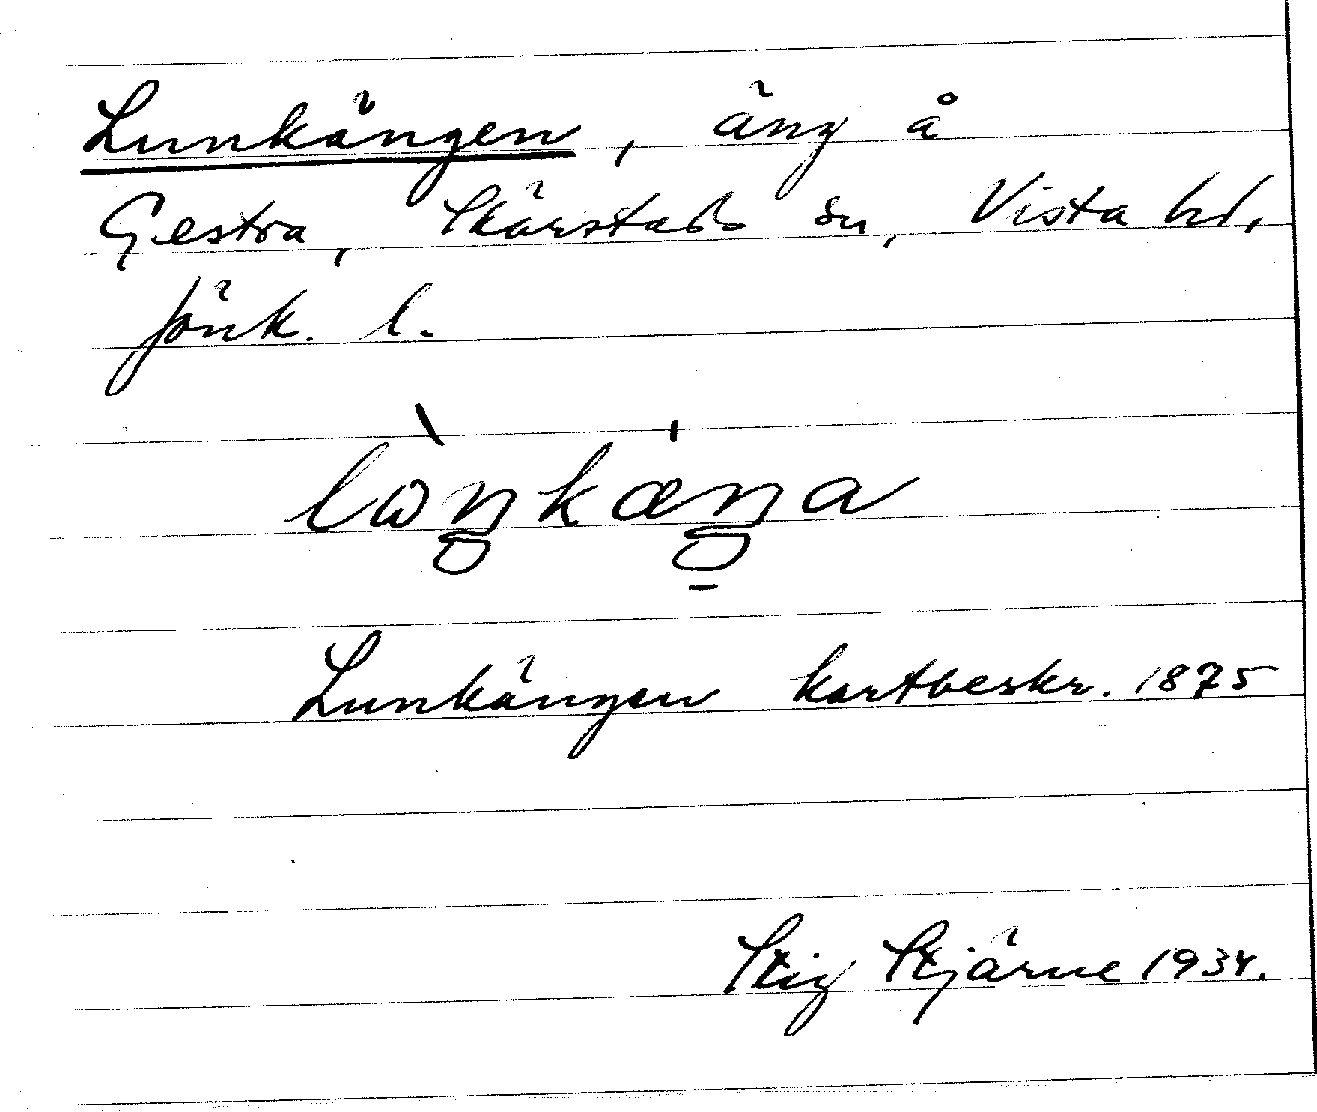 Lunkängen, äng å
Gestra, Skärstads sn, Vista hd,
Jönk. l.
lὼŋkæ̍ŋa
Lunkängen kartbeskr. 1875
Stig Stjärne 1934.